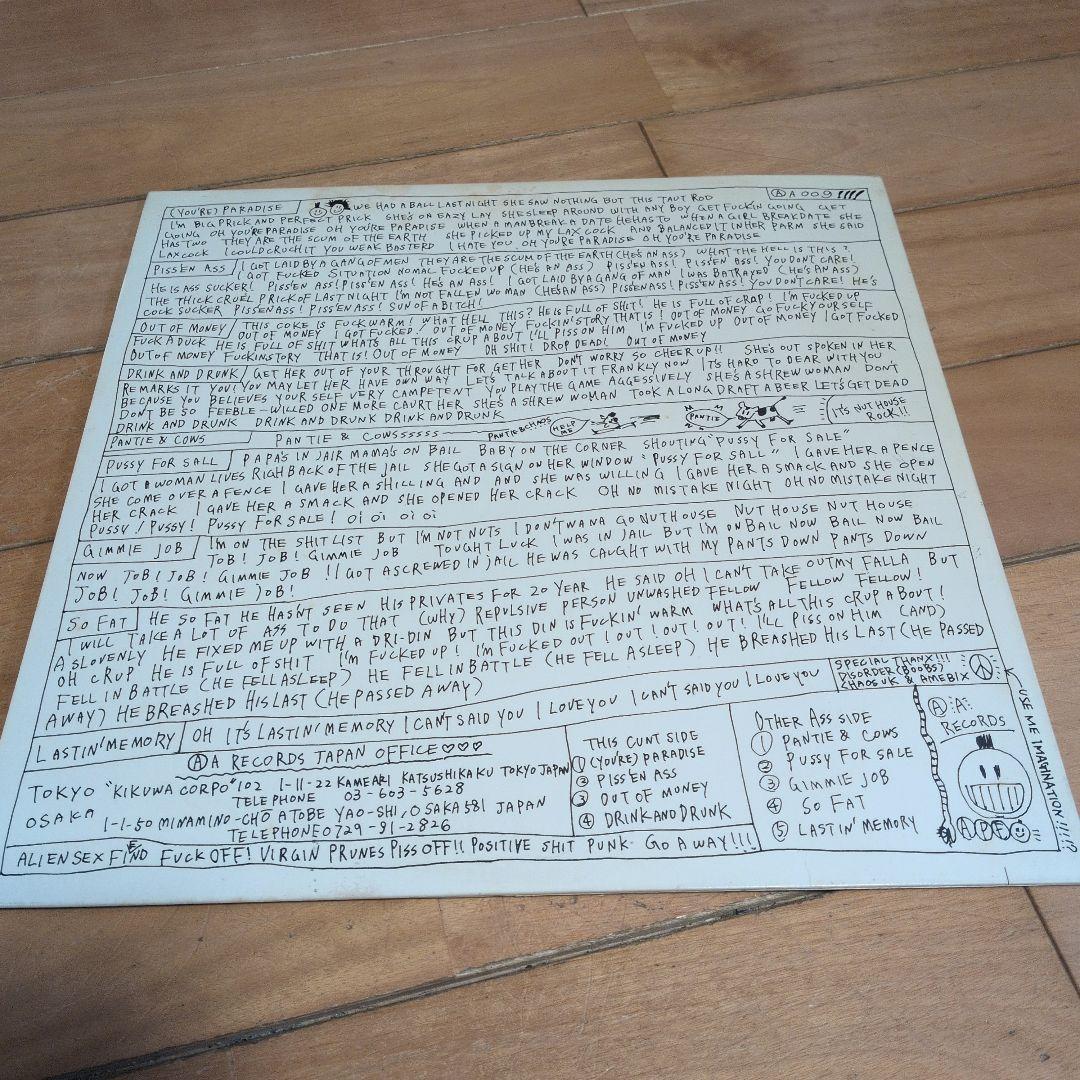 (YOU'RE) PARADISE
WE HAD A BALL LAST NIGHT SHE SAW NOTHING BUT THIS TAUT ROD
Ⓐ A 009
I'M BIG PRICK AND PERFECT PRICK SHE'S ON EAZY LAY SHE SLEEP AROUND WITH ANY BOY GET FUCKIN GOING GET
GOING OH YOU'RE PARADISE OH YOU'RE PARADISE WHEN A MAN BREAK A DATE HE HAS TO WHEN A GIRL BREAK DATE SHE
HAS TWO THEY ARE THE SCUM OF THE EARTH SHE PICKED UP MY LAX COCK AND BALANCED IT IN HER PARM SHE SAID
LAX COCK I COULD CRUCH IT YOU WEAK BASTERD I HATE YOU OH YOU'RE PARADISE OH YOU'RE PARADISE
PISS'EN ASS
I GOT LAID BY A GANG OF MEN THEY ARE THE SCUM OF THE EARTH (HE'S AN ASS) WHAT THE HELL IS THIS?
I GOT FUCKED SITUATION NOMAL FUCKED UP (HE'S AN ASS) PISS'EN ASS! PISS'EN ASS! YOU DONT CARE!
HE IS ASS SUCKER! PISS'EN ASS! PISS'EN ASS! HE'S AN ASS! I GOT LAID BY A GANG OF MAN I WAS BATRAYED (HE'S AN ASS)
THE THICK CRUEL PRICK OF LAST NIGHT I'M NOT FALLEN WOMAN (HE'S AN ASS) PISS'EN ASS! PISS'EN ASS! YOU DON'T CARE! HE'S
COCK SUCKER PISS'EN ASS! PISS'EN ASS! SUN OF A BITCH!
OUT OF MONEY
THIS COKE IS FUCK WARM! WHAT HELL THIS? HE IS FULL OF SHIT! HE IS FULL OF CRAP! I'M FUCKED UP
OUT OF MONEY I GOT FUCKED! OUT OF MONEY FUCKIN' STORY THAT IS! OUT OF MONEY GO FUCK YOURSELF
FUCK A DUCK HE IS FULL OF SHIT WHAT'S ALL THIS CRUP ABOUT I'LL PISS ON HIM I'M FUCKED UP OUT OF MONEY I GOT FUCKED
OUT OF MONEY FUCKIN STORY THAT IS! OUT OF MONEY OH SHIT! DROP DEAD! OUT OF MONEY
DRINK AND DRUNK
GET HER OUT OF YOUR THROUGHT FOR GET HER DON'T WORRY SO CHEER UP!! SHE'S OUT SPOKEN IN HER
REMARKS IT YOU! YOU MAY LET HER HAVE OWN WAY LET'S TALK ABOUT IT FRANKLY NOW IT'S HARD TO DEAR WITH YOU
BECAUSE YOU BELIEVES YOUR SELF VERY COMPETENT YOU PLAY THE GAME AGGESSIVELY SHE'S A SHREW WOMAN DON'T
DON'T BE SO FEEBLE-WILLED ONE MORE CAURT HER SHE'S A SHREW WOMAN TOOK A LONG DRAFT A BEER LET'S GET DEAD
DRINK AND DRUNK DRINK AND DRUNK DRINK AND DRUNK
PANTIE & COWS
PANTIE & COWSSSSSS
PANTIE & CHAOS
HELP ME
PANTIE
IT'S NUT HOUSE ROCK!!
PUSSY FOR SALL
PAPA'S IN JAIR MAMA'S ON BAIL BABY ON THE CORNER SHOUTING "PUSSY FOR SALE"
I GOT A WOMAN LIVES RIGH BACK OF THE JAIL SHE GOT A SIGN ON HER WINDOW "PUSSY FOR SALL" I GAVE HER A PENCE
SHE COME OVER A FENCE I GAVE HER A SHILLING AND AND SHE WAS WILLING I GAVE HER A SMACK AND SHE OPEN
HER CRACK I GAVE HER A SMACK AND SHE OPENED HER CRACK OH NO MISTAKE NIGHT OH NO MISTAKE NIGHT
PUSSY! PUSSY! PUSSY FOR SALE! Oi Oi Oi Oi
GIMMIE JOB
I'M ON THE SHIT LIST BUT I'M NOT NUTS I DON'T WANA GO NUTHOUSE NUT HOUSE NUT HOUSE
JOB! JOB! GIMMIE JOB TOUGHT LUCK I WAS IN JAIL BUT I'M ON BAIL NOW BAIL NOW BAIL
NOW JOB! JOB! GIMMIE JOB! I GOT A SCREWED IN JAIL HE WAS CAUGHT WITH MY PANTS DOWN PANTS DOWN
JOB! JOB! GIMMIE JOB!
SO FAT
HE SO FAT HE HASN'T SEEN HIS PRIVATES FOR 20 YEAR HE SAID OH I CAN'T TAKE OUT MY FALLA BUT
I WILL TAKE A LOT OF ASS TO DO THAT (WHY) REPULSIVE PERSON UNWASHED FELLOW FELLOW FELLOW!
A SLOVENLY HE FIXED ME UP WITH A DRI-DIN BUT THIS DIN IS FUCKIN' WARM WHAT'S ALL THIS CRUP ABOUT!
OH CRUP HE IS FULL OF SHIT I'M FUCKED UP! I'M FUCKED OUT! OUT! OUT! OUT! I'LL PISS ON HIM (AND)
FELL IN BATTLE (HE FELL ASLEEP) HE FELL IN BATTLE (HE FELL ASLEEP) HE BREASHED HIS LAST (HE PASSED
AWAY) HE BREASHED HIS LAST (HE PASSED AWAY)
LASTIN' MEMORY
OH IT'S LASTIN' MEMORY I CAN'T SAID YOU I LOVE YOU I CAN'T SAID YOU I LOVE YOU
SPECIAL THANX!!!
DISORDER (BOOBS)
CHAOS UK & AMEBIX
Ⓐ
Ⓐ A RECORDS JAPAN OFFICE♡♡♡
TOKYO "KIKUWA CORPO" 102 1-11-22 KAMEARI KATSUSHIKAKU TOKYO JAPAN
TELEPHONE 03-603-5628
OSAKA 1-1-50 MINAMINO-CHO ATOBE YAO-SHI, OSAKA 581 JAPAN
TELEPHONE 0729-91-2826
THIS CUNT SIDE
① (YOU'RE) PARADISE
② PISS'EN ASS
③ OUT OF MONEY
④ DRINK AND DRUNK
OTHER ASS SIDE
① PANTIE & COWS
② PUSSY FOR SALE
③ GIMMIE JOB
④ SO FAT
⑤ LASTIN' MEMORY
Ⓐ A
RECORDS
APE
USE ME IMAGINATION!!!!!?
ALIEN SEX FIEND FUCK OFF! VIRGIN PRUNES PISS OFF!! POSITIVE SHIT PUNK GO AWAY!!!